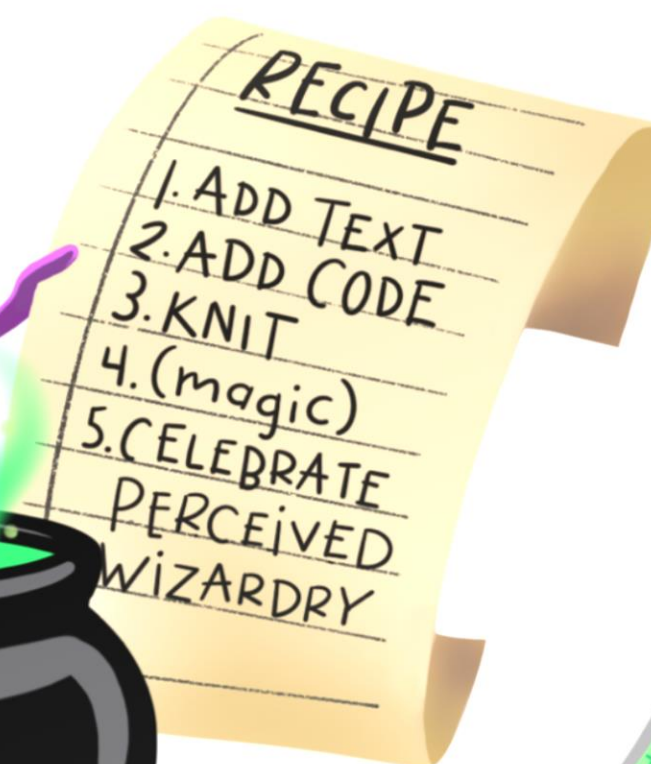 RECIPE
1. ADD TEXT
2. ADD CODE
3. KNIT
4. (magic)
5. CELEBRATE
PERCEiVED
WiZARDRY